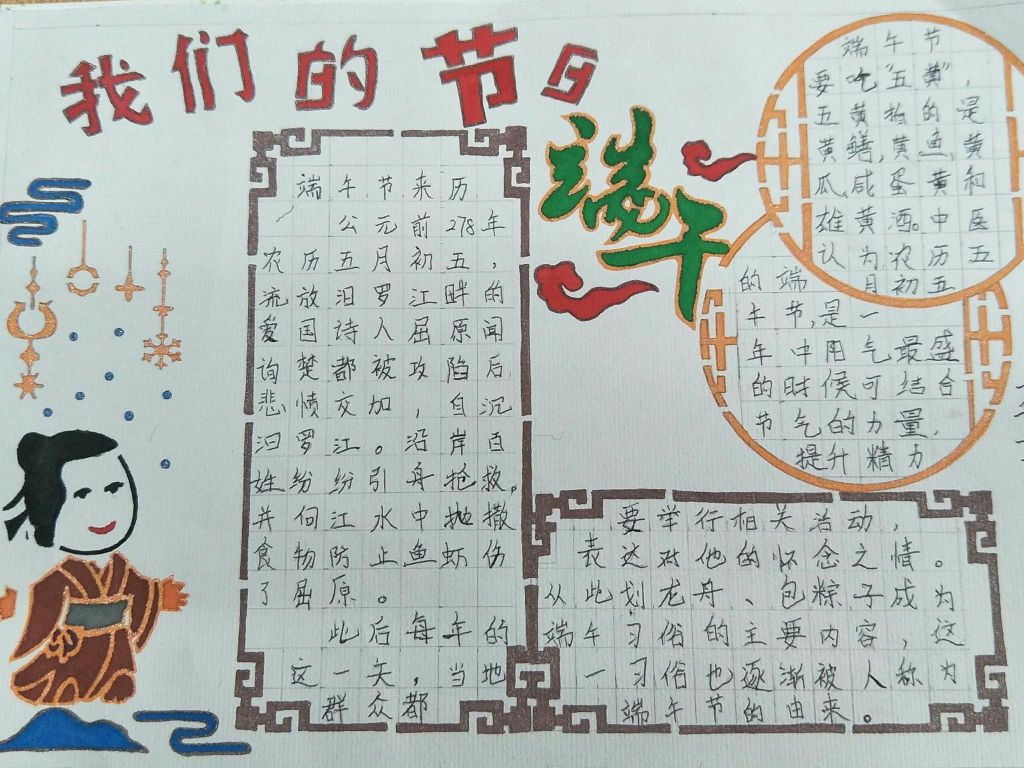 我们的节日
端午
端午节来历
公元前278年
农历五月初五，
流放汨罗江畔的
爱国诗人屈原闻
询楚都被攻陷后，
悲愤交加，自沉
汨罗江。沿岸百
姓纷纷引舟抢救。
并伺江水中抛撒
食物防止鱼虾伤
了屈原。
此后每年的
这一天，当地
群众都
要举行相关活动，
表达对他的怀念之情。
从此划龙舟、包粽子成为
端午习俗的主要内容，这
一习俗也逐渐被人称为
端午节的由来。
端午节
要吃“五黄”，
五黄指的是
黄鳝，黄鱼，黄
瓜、咸蛋黄和
雄黄酒。中医
认为，农历五
月初五
的端
午节，是一
年中阳气最盛
的时候可结合
节气的力量，
提升精力